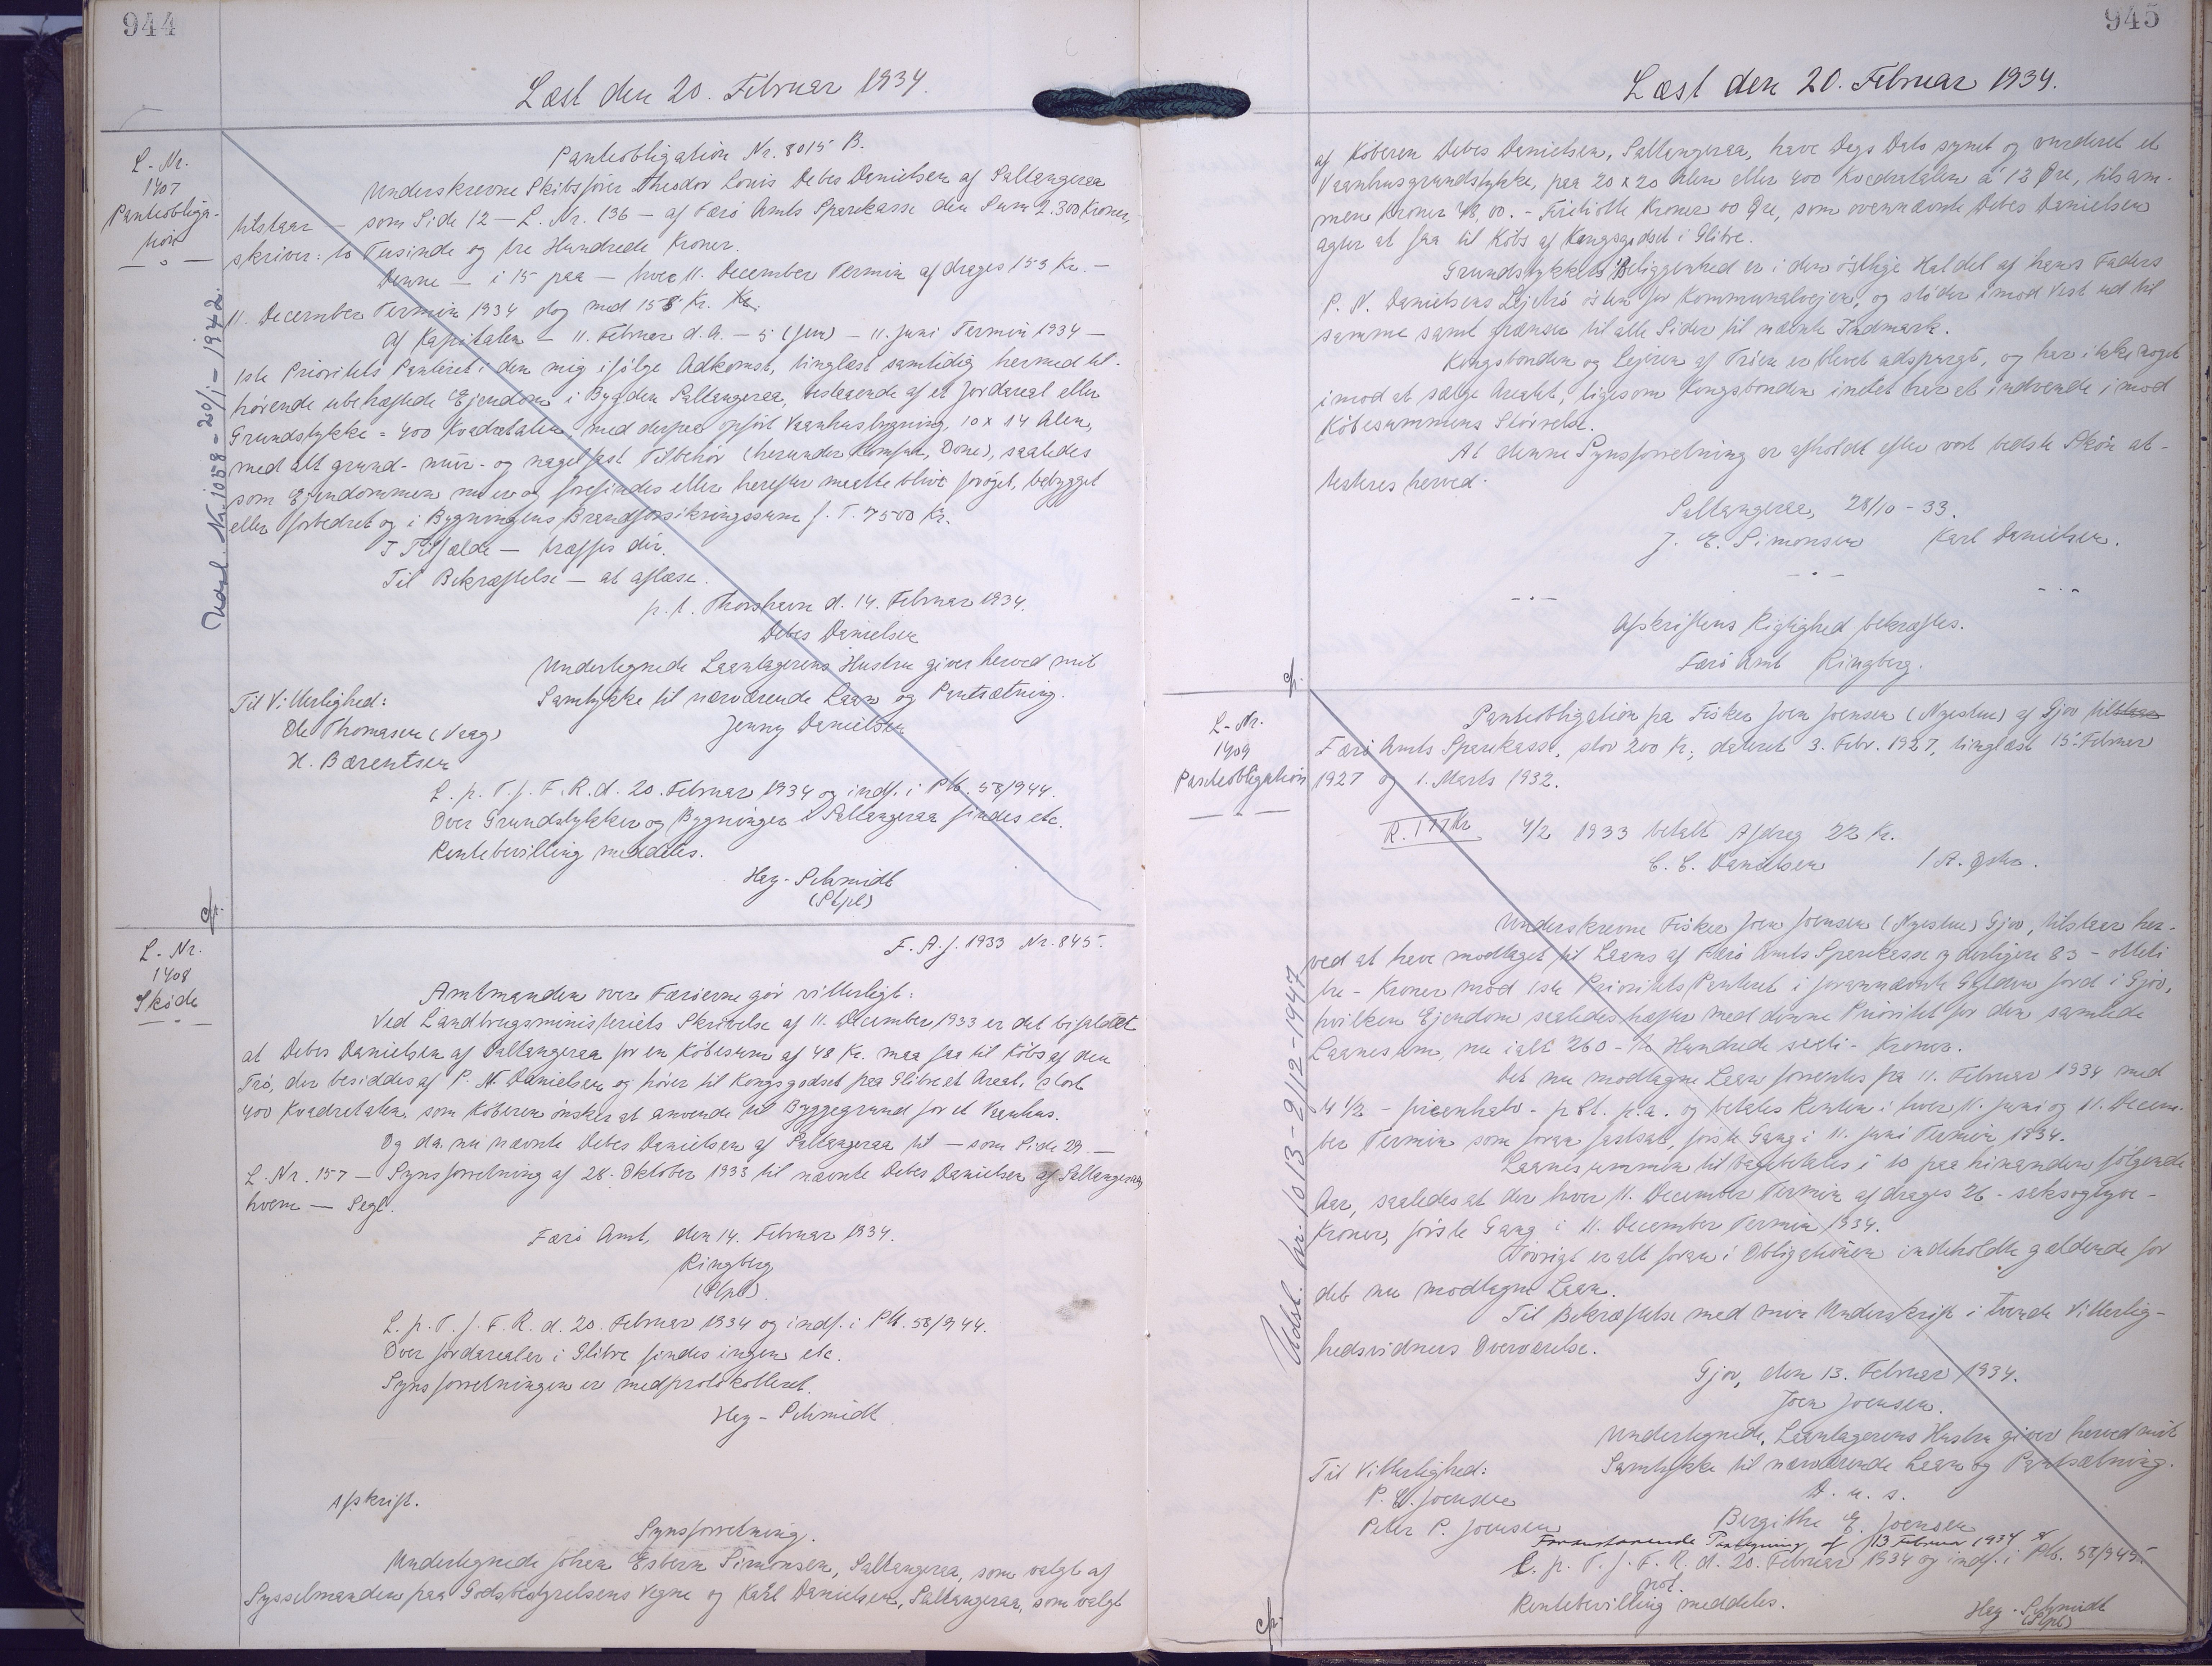 944
Læst den 20. Februar 1934.
L-Nr.
1407
Panteobliga-
tion
Udsl. Nr. 1058 - 20/1 - 1942.
Panteobligation Nr. 8015 B.
Underskrevne Skibsfører Theodor Louis Debes Danielsen af Saltangeraa
tilstaar — som Side 12 — L. Nr. 136 — af Færö Amts Sparekasse den Sum 2.300 Kroner,
skriver: to Tusinde og tre Hundrede Kroner.
Denne — i 15 paa — hver 11. December Termin afdrages 153 Kr. —
11. December Termin 1934 dog med 158 Kr. Kr.
Af Kapitalen — 11. Februar d.A. — 5 (fem) — 11. Juni Termin 1934 —
1ste Prioritets Panteret i den mig ifølge Adkomst, tinglæst samtidig hermed til-
hørende ubehæftede Ejendom i Bygden Saltangeraa, bestaaende af et Jordareal eller
Grundstykke = 400 Kvadratalen, med derpaa opført Vaanhusbygning, 10 x 14 Alen,
med alt grund- mur- og nagelfast Tilbehör (herunder Komfur, Ovne), saaledes
som Ejendommen nu er og forefindes eller herefter maatte blive forøget, bebygget
eller forbedret og i Bygningens Brandforsikringssum f. T. 7500 Kr.
I Tilfælde — træffes dér.
Til Bekræftelse — at aflæse.
p. t. Thorshavn d. 14. Februar 1934.
Debes Danielsen
Undertegnede Laantagerens Hustru giver herved mit
Samtykke til nærværende Laan og Pantsætning.
Jenny Danielsen
Til Vitterlighed:
Ole Thomasen (Vaag)
H. Bærentsen
L. p. T. f. F. R. d. 20. Februar 1934 og indf. i Ptk. 58/944.
Over Grundstykker og Bygninger i Saltangeraa findes etc.
Rentebevilling meddeles.
Hey-Schmidt
(Stpl)
L-Nr.
1408
Sköde
F. A. J. 1933 Nr. 845.
Amtmanden over Færöerne gör vitterligt:
Ved Landbrugsministeriets Skrivelse af 11. December 1933 er det bifaldet
at Debes Danielsen af Saltangeraa for en Köbesum af 48 Kr. maa faa til Köbs af den
Trö, der besiddes af P. N. Danielsen og hörer til Kongsgodset paa Glibre et Areal, stort
400 Kvadratalen, som Köberen önsker at anvende til Byggegrund for et Vaanhus.
Og da nu nævnte Debes Danielsen af Saltangeraa til — som Side 29 —
L. Nr. 157 — Synsforretning af 28. Oktober 1933 til nævnte Debes Danielsen af Saltangeraa,
hvem — Segl.
Færö Amt, den 14. Februar 1934.
Ringberg
(Stpl).
L. p. T. f. F. R. d. 20. Februar 1934 og indf. i Ptk. 58/944.
Over Jordarealer i Glibre findes ingen etc.
Synsforretningen er medprotokolleret.
Hey-Schmidt
Afskrift.
Synsforretning.
Undertegnede Johan Esbern Simonsen, Saltangeraa, som valgt af
Sysselmanden paa Godsbestyrelsens Vegne og Karl Danielsen, Saltangeraa, som valgt
945
Læst den 20. Februar 1934.
af Köberen Debes Danielsen, Saltangeraa, have Dags Dato synet og vurderet et
Vaanhusgrundstykke, paa 20 x 20 Alen eller 400 Kvadratalen à 12 Øre, tilsam-
men Kroner 48,00. - Fireti otte Kroner 00 Øre, som ovennævnte Debes Danielsen
agter at faa til Köbs af Kongsgodset i Glibre.
Grundstykkets Beliggenhed er i den östlige Haldel af hans Faders
P. N. Danielsens Lejetrö östen for Kommunalvejen, og stöder imod Vest ud til
samme samt grænser til alle Sider til nævnte Indmark.
Kongsbonden og Lejeren af Tröen er blevet adspurgt, og har ikke noget
imod at sælge Arealet, ligesom Kongsbonden intet har at indvende imod
Köbesummens Störrelse.
At denne Synsforretning er afholdt efter vort bedste Skön at-
testeres herved.
Saltangeraa, 28/10 - 33.
J. E. Simonsen Karl Danielsen.
Afskriftens Rigtighed bekræftes.
Færö Amt Ringberg.
L-Nr.
1409
Panteobligation
Udsl. Nr. 1013 - 9/12 - 1947
Panteobligation fra Fisker Joen Joensen (Nyestue) af Gjov til
Færö Amts Sparekasse, stor 200 Kr., dateret 3. Febr. 1927, tinglæst 15. Februar
1927 og 1. Marts 1932.
R. 177 Kr 4/2 1933 betalt Afdrag 22 Kr.
C. C. Danielsen / A.
Underskrevne Fisker Joen Joensen (Nyestue) Gjov, tilstaar her-
ved at have modtaget til Laans af Færö Amts Sparekasse yderligere 83 - otteti
tre - Kroner mod 1ste Prioritets Panteret i forannævnte Gylden Jord i Gjov,
hvilken Ejendom saaledes hæfter med denne Prioritet for den samlede
Laanesum, nu ialt 260 - to Hundrede seksti - Kroner.
Det nu modtagne Laan forrentes fra 11. Februar 1934 med
4 1/2 - fireenhalv - p Ct. p.a. og betales Renten i hver 11. Juni og 11. Decem-
ber Termin som foran fastsat, første Gang i 11. Juni Termin 1934.
Laanesummen tilbagebetales i 10 paa hinanden følgende
Aar, saaledes at der hver 11. December Termin afdrages 26 - seksogtyve -
Kroner, første Gang i 11. December Termin 1934.
Iövrigt er alt foran i Obligationen indeholdte gældende for
det nu modtagne Laan.
Til Bekræftelse med min Underskrift i tvende Vitterlig-
hedsvidners Overværelse.
Gjov, den 13. Februar 1934.
Joen Joensen.
Undertegnede, Laantagerens Hustru giver herved mit
Samtykke til nærværende Laan og Pantsætning.
D. u. s.
Bergithe E. Joensen
Til Vitterlighed:
P. W. Joensen
Peter P. Joensen
Foranstaaende Paategning af 13 Februar 1934
L. p. T. f. F. R. d. 20. Februar 1934 og indf. i Ptk. 58/945.
not.
Rentebevilling meddeles.
Hey-Schmidt
(Stpl)